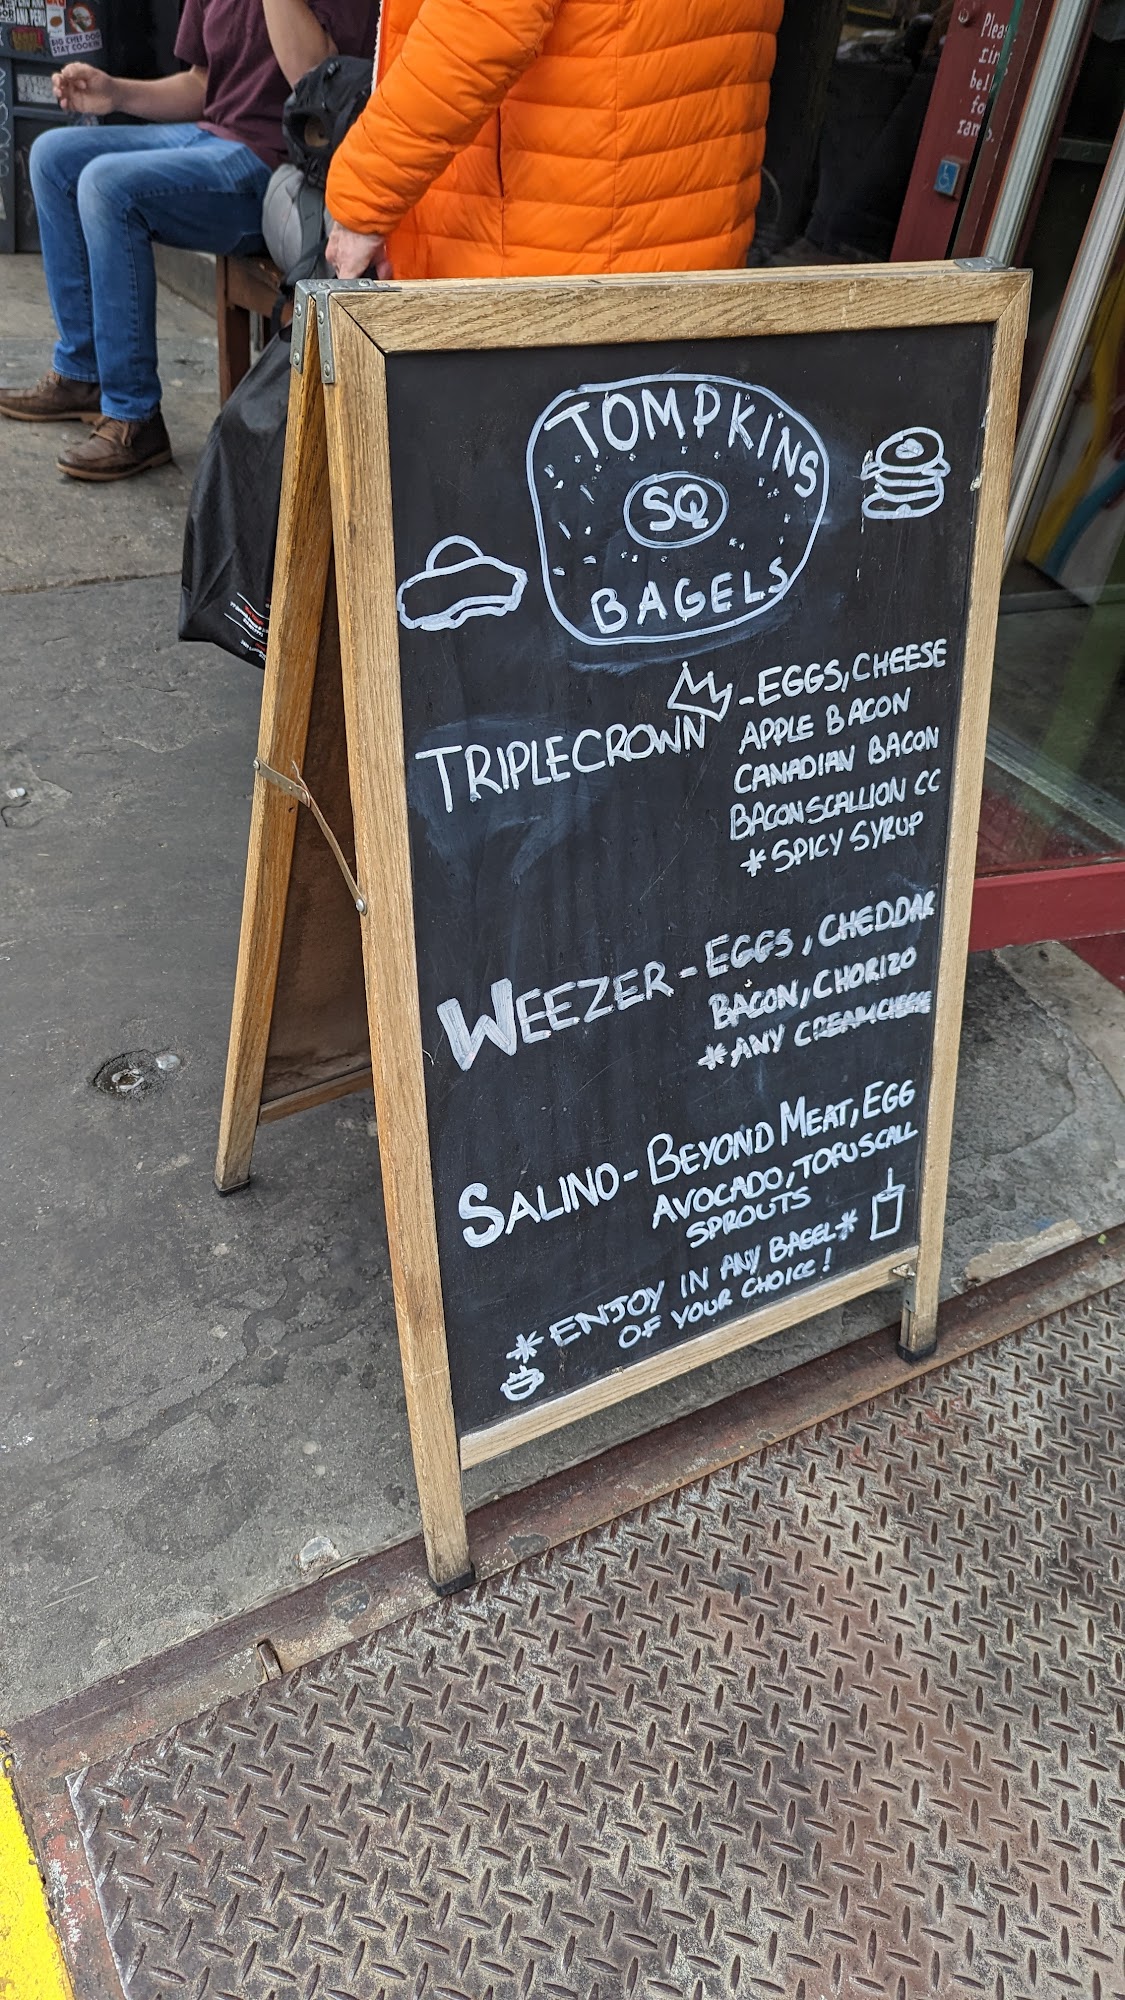 BIG CHEF DOG
STAY COOKIN
Please
ring
bell
for
ramp.
TOMPKINS
SQ
BAGELS
TRIPLECROWN
-EGGS, CHEESE
APPLE BACON
CANADIAN BACON
BACON SCALLION CC
*SPICY SYRUP
WEEZER - EGGS, CHEDDAR
BACON, CHORIZO
*ANY CREAMCHEESE
SALINO- BEYOND MEAT, EGG
AVOCADO, TOFUSCALL
SPROUTS
*ENJOY IN ANY BAGEL*
OF YOUR CHOICE!